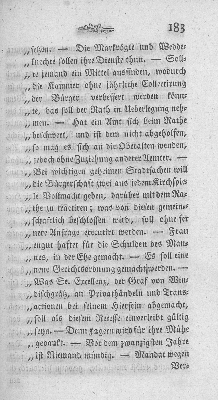 183
„setzen. — Die Markvögte und Wedde-
„knechte sollen ihre Dienste thun. — Soll-
„te jemand ein Mittel ausfinden, wodurch
„die Kammer ohne jährliche Collectirung
„der Bürger verbessert werden könn-
„te, das soll der Rath in Ueberlegung neh-
„men. — Hat ein Amt sich beim Rathe
„beschwert, und ist dem nicht abgeholfen,
„so mag es sich an die Oberalten wenden,
„jedoch ohne Zuziehung anderer Aemter. —
„Bei wichtigen geheimen Stadtsachen will
„die Bürgerschaft zwei aus jedem Kirchspiel
„le Vollmacht geben, darüber mit dem Ra-
„the zu tractiren; was von diesen gemein-
„schaftlich beschlossen wird, soll ohne fer
„nere Anfrage executirt werden. — Frau
„engut haftet für die Schulden des Man-
„nes, in der Ehe gemacht. — Es soll eine
„neue Gerichtsordnung gemacht werden. —
„Was Se. Excellenz, der Graf von Win-
„dischgrätz, an Privathändeln und Trans-
„actionen bei seinem Hiersein abgemacht,
„soll als diesem Recesse einverleibt gültig
„seyn. — Dem
„gesorgt. — Vor dem zwanzigsten Jahre
„ist Niemand mündig. — Mandat wegen
Ver-